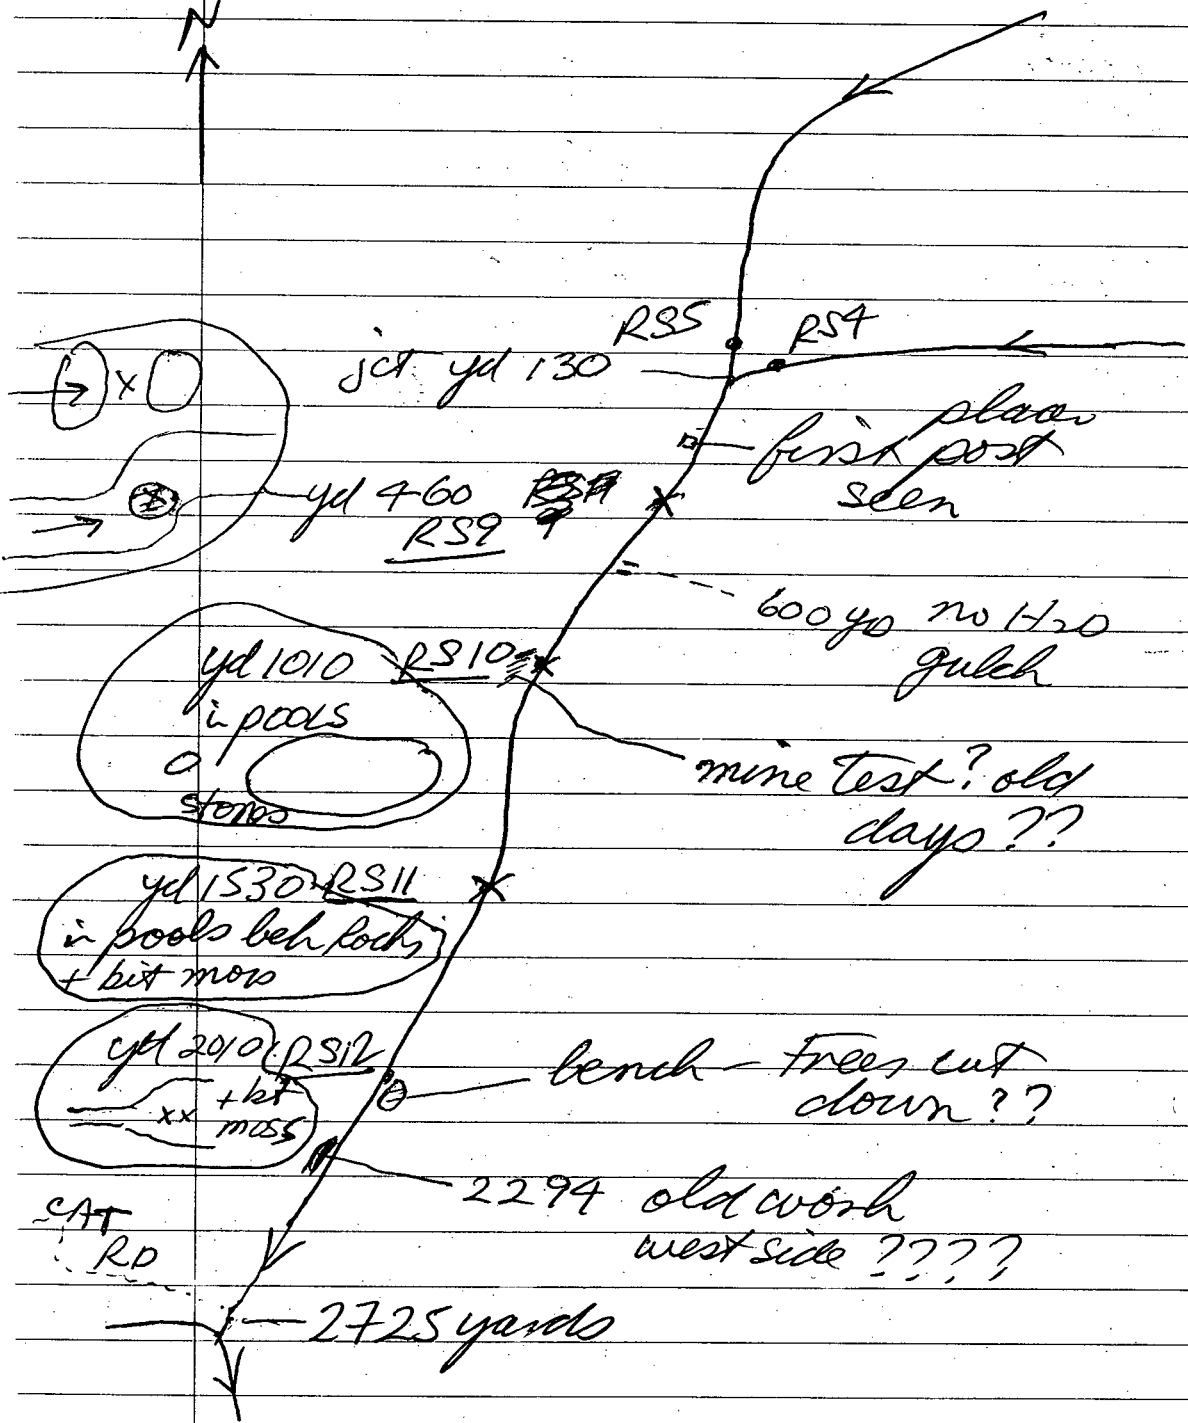 N
RS5
RS4
jct yd 130
placer
first post
seen
yd 460
RS9
600 yd no H2O
gulch
yd 1010 RS10
in pools
stones
mine test? old
days ??
yd 1530 RS11
in pools beh Rocks
+ bit moss
yd 2010 RS12
+ bit
xx moss
bench - Trees cut
down ??
2294 old work
west side ????
CAT
RD
2725 yards